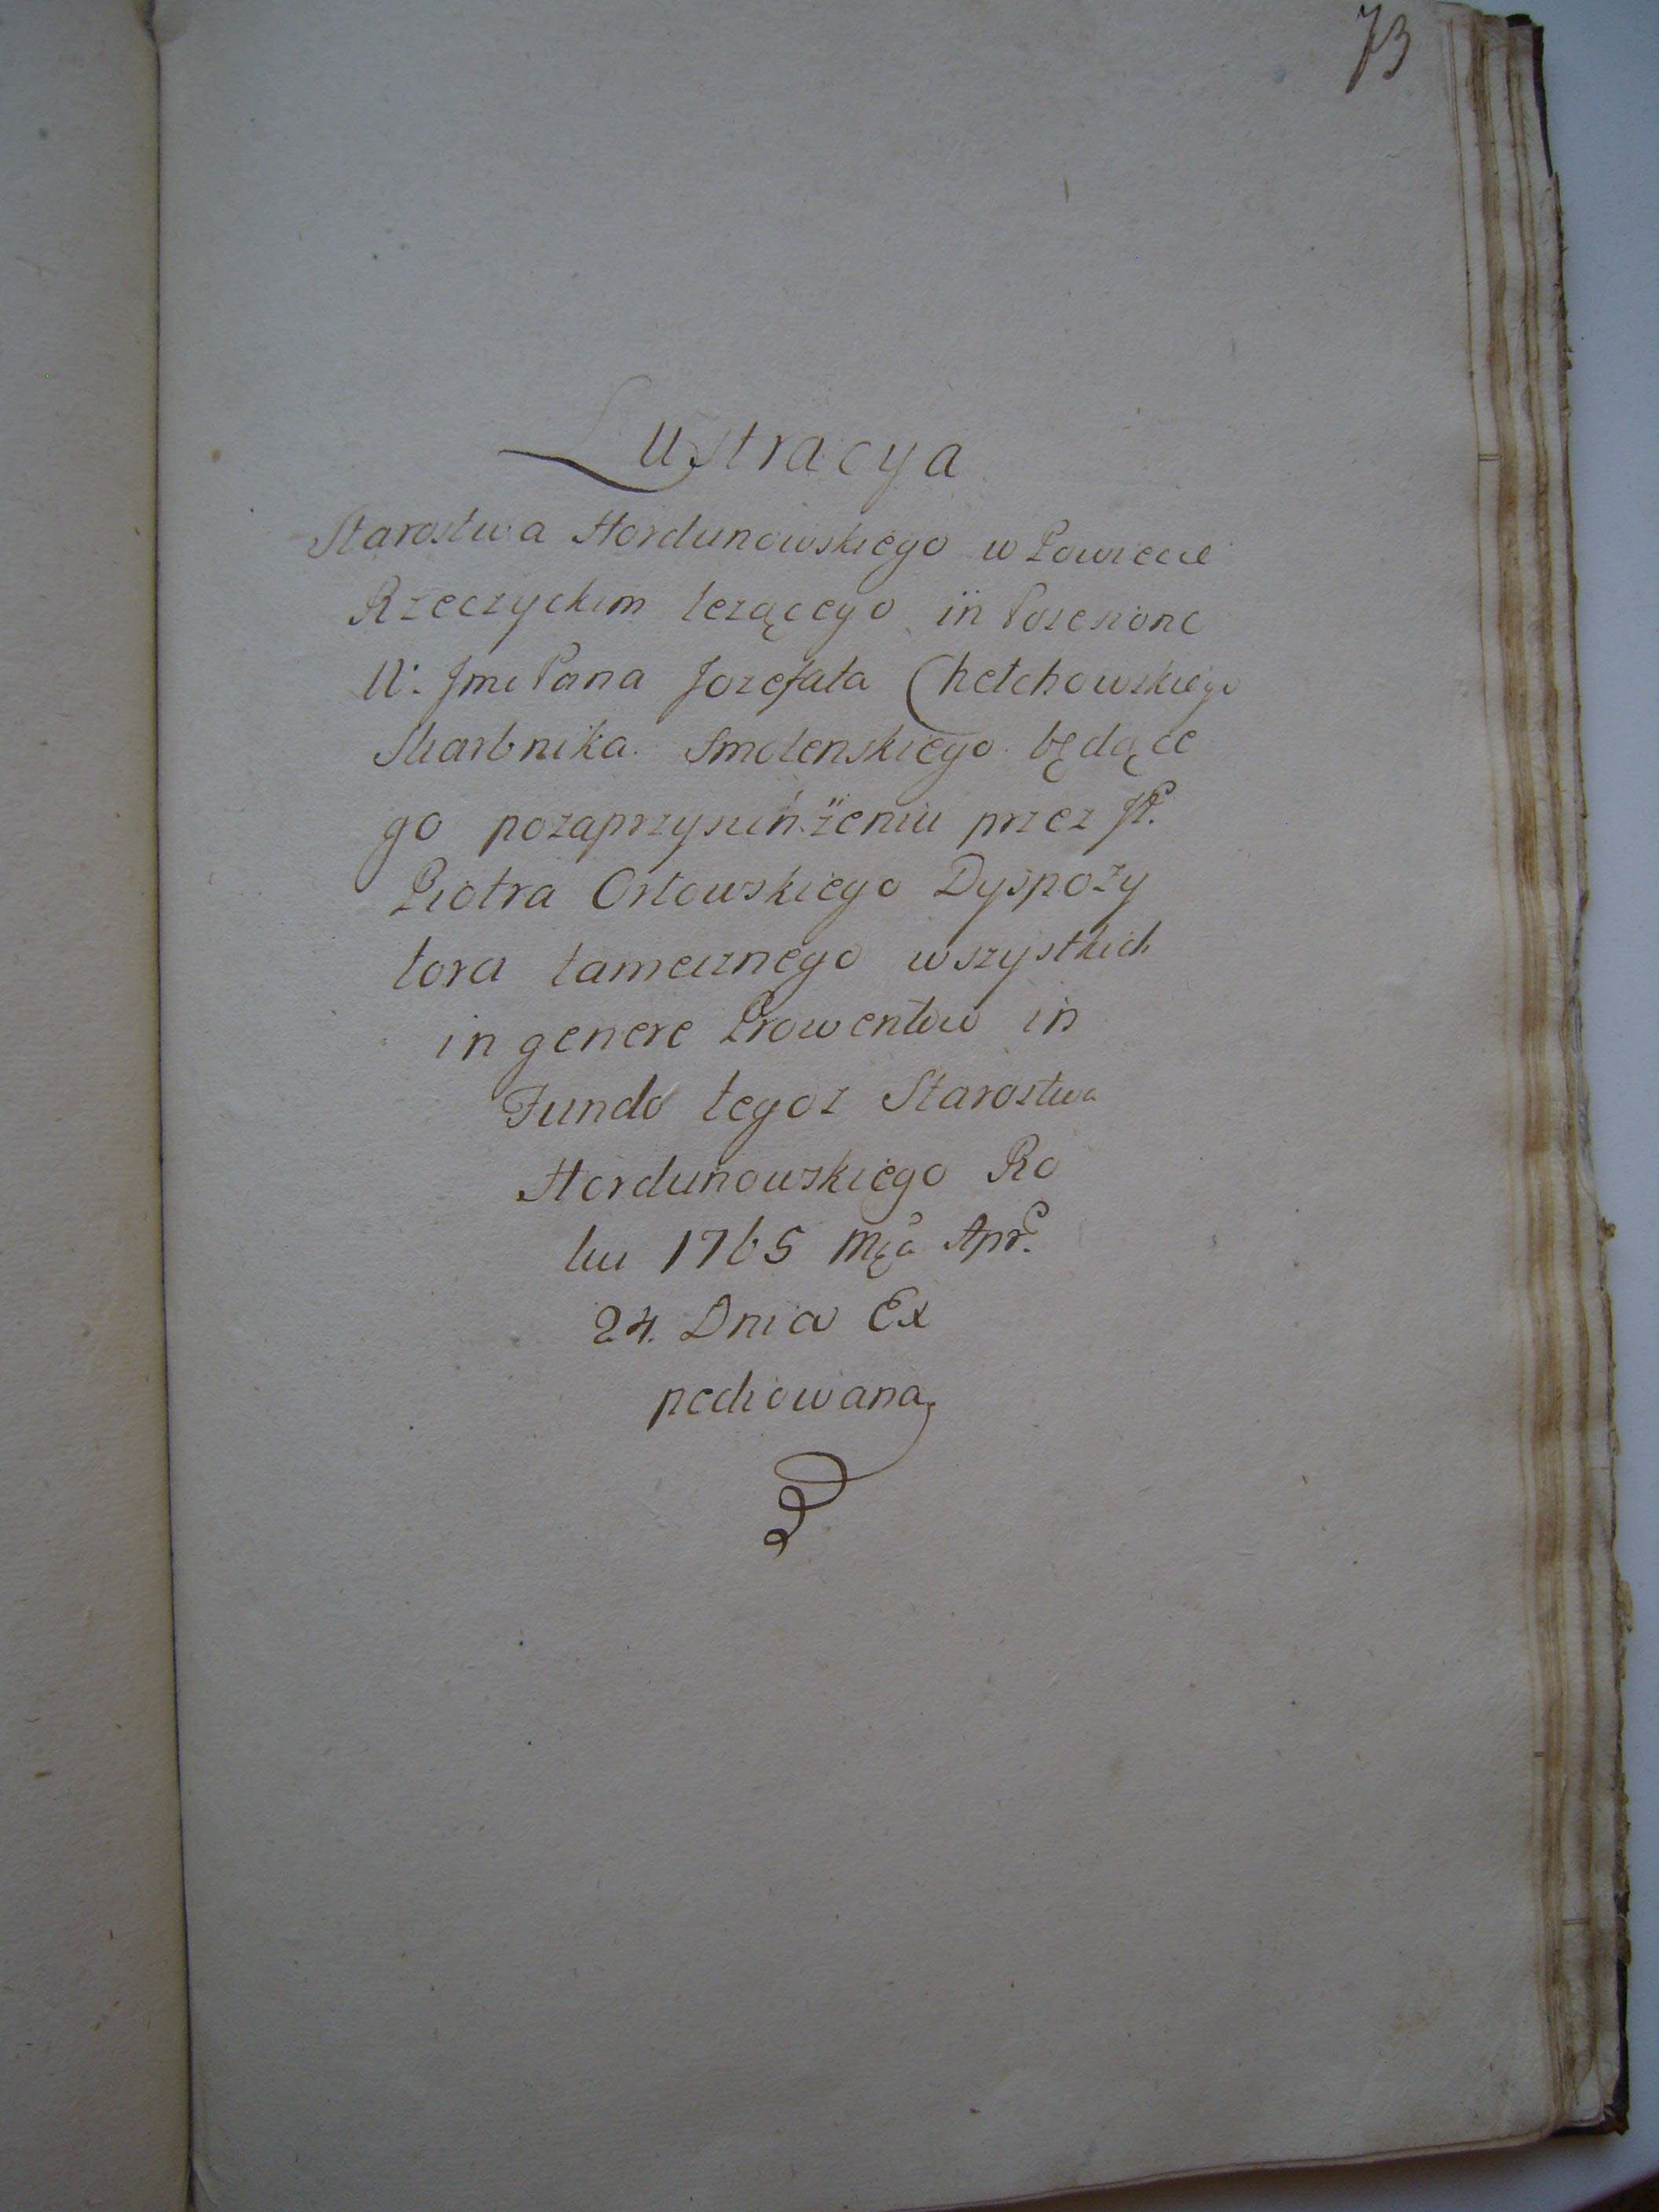 73
Lustracya
Starostwa Hordunowskiego w Powiecie
Rzeczyckim lezącego in Posesione
W: Jmć Pana Jozefata Chełchowskiego
Skarbnika Smolenskiego będące
go po zaprzysiężeniu przez JP.
Piotra Orłowskiego Dyspozy
tora tamecznego wszystkich
in genere Prowentow in
Fundo tegoz Starostwa
Hordunowskiego Ro
ku 1765 Mca Apr.
24. Dnia Ex
pediowana